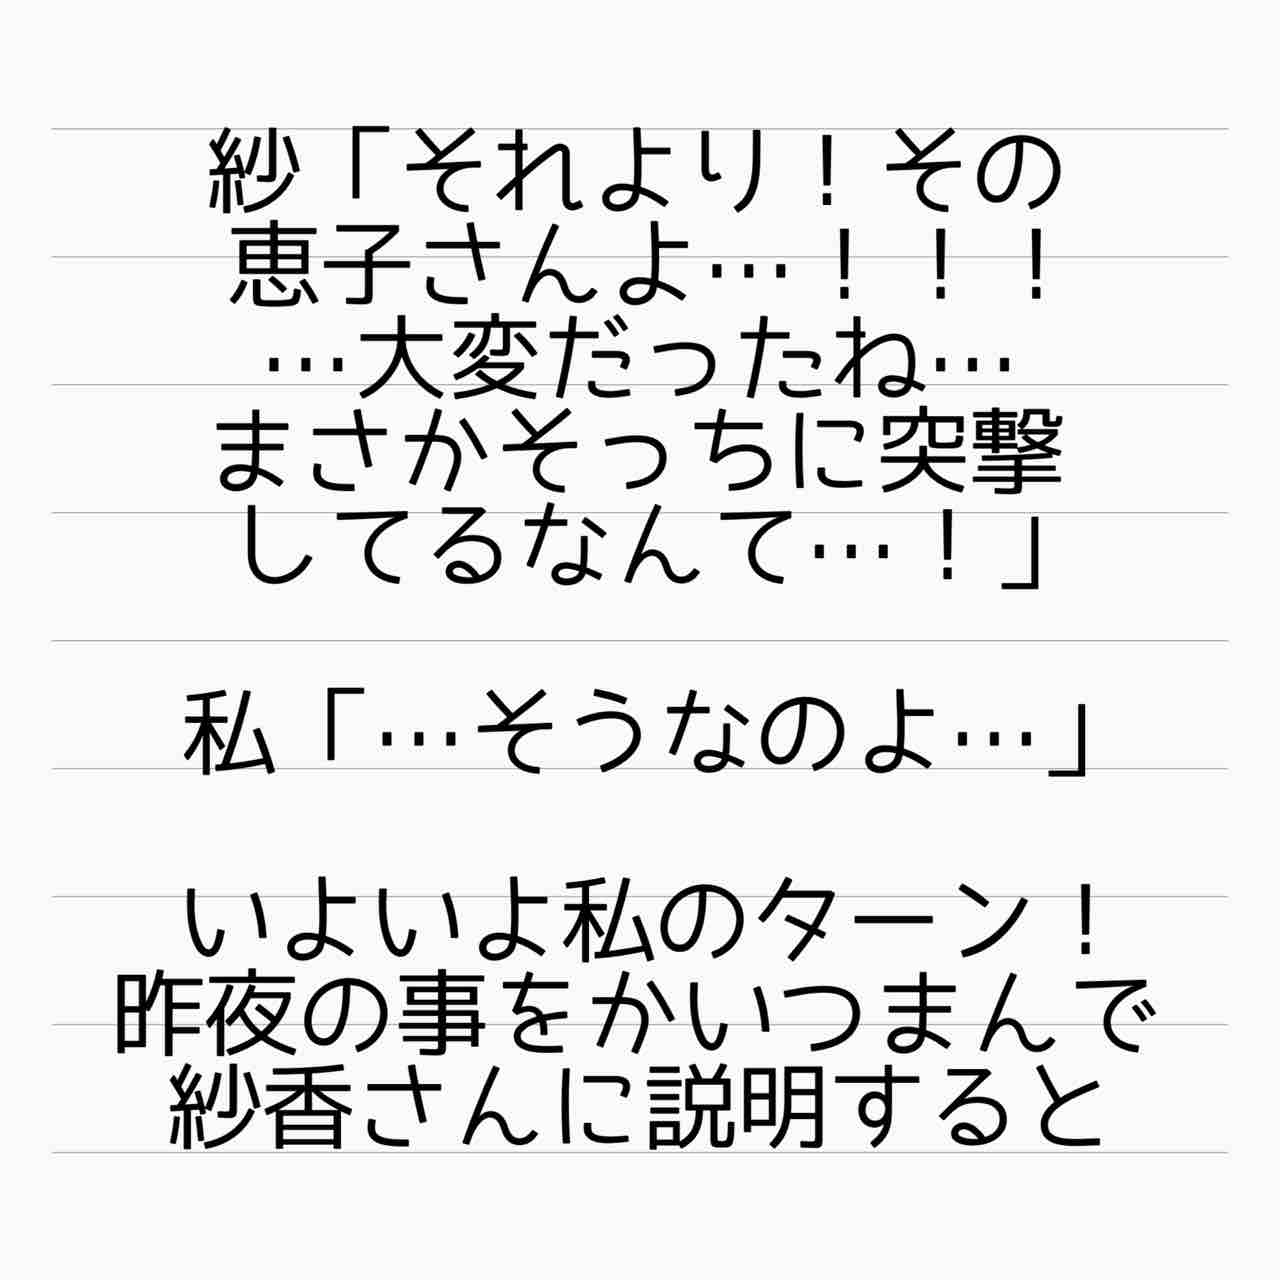 紗「それより！その
恵子さんよ…！！！
…大変だったね…
まさかそっちに突撃
してるなんて…！」
私「…そうなのよ…」
いよいよ私のターン！
昨夜の事をかいつまんで
紗香さんに説明すると